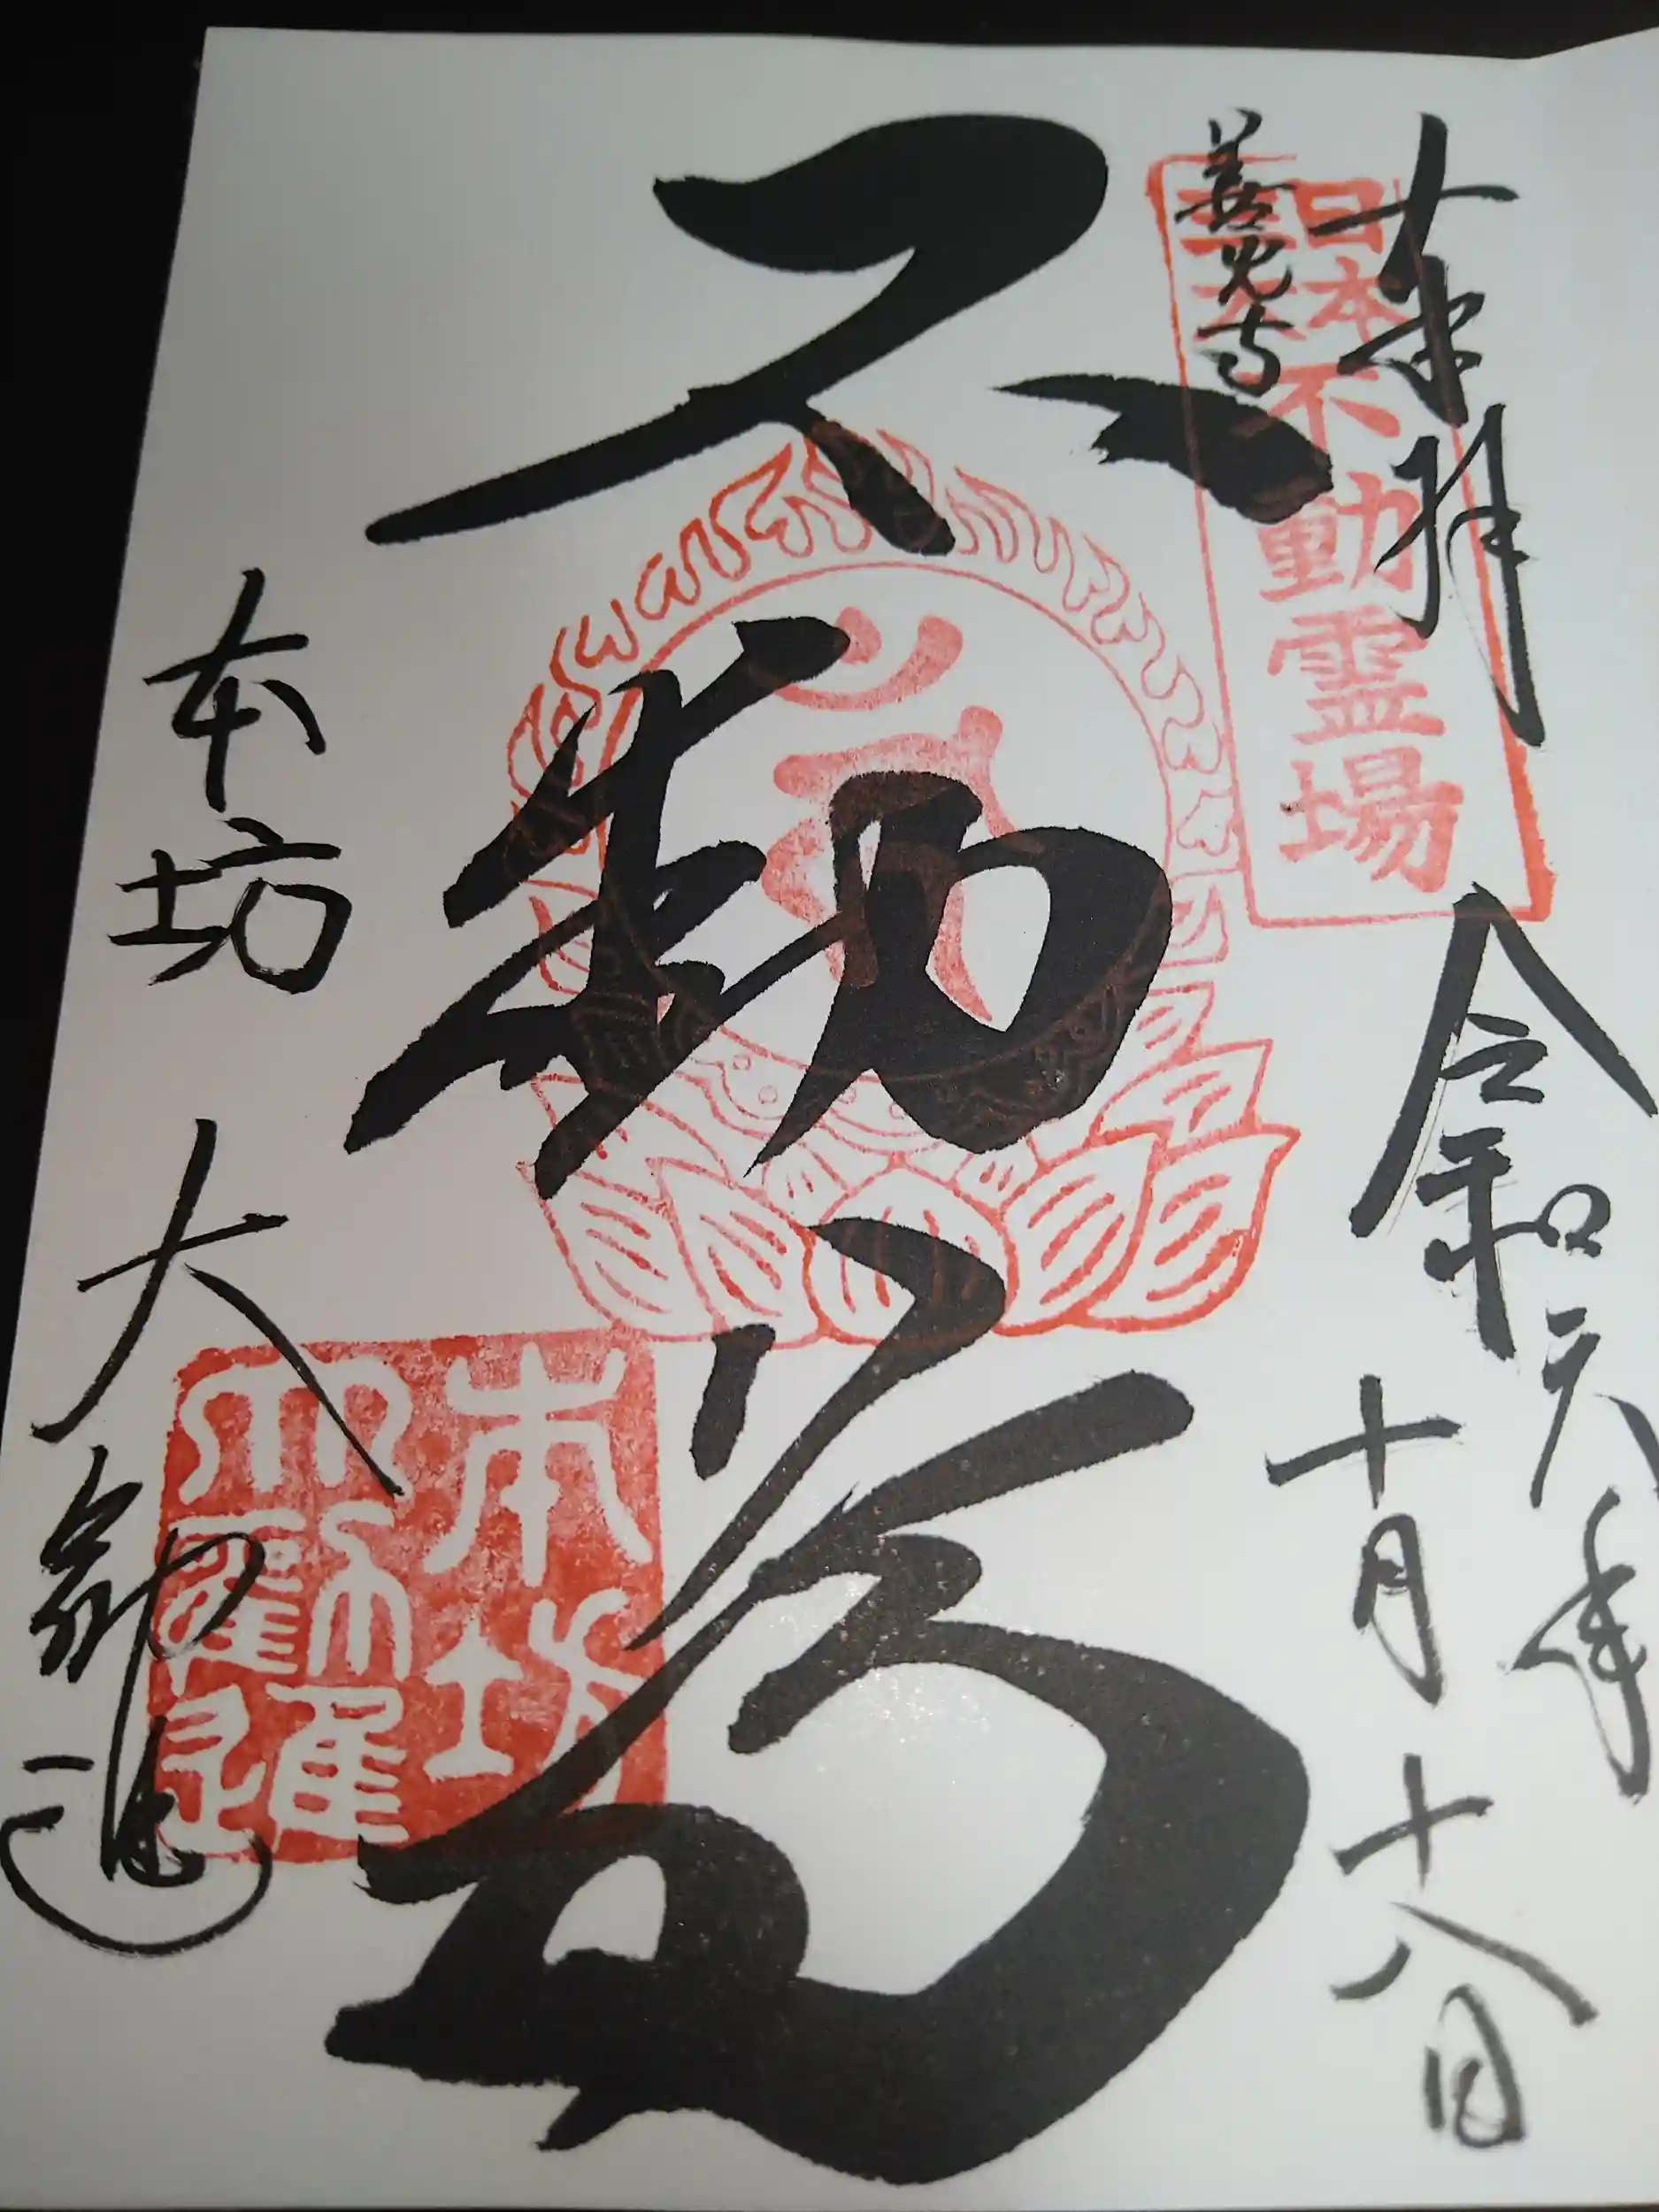 奉拝
令和元年
十月十八日
日本
不動霊場
善光寺
不動尊
本坊
大勸進
本坊 大勧進